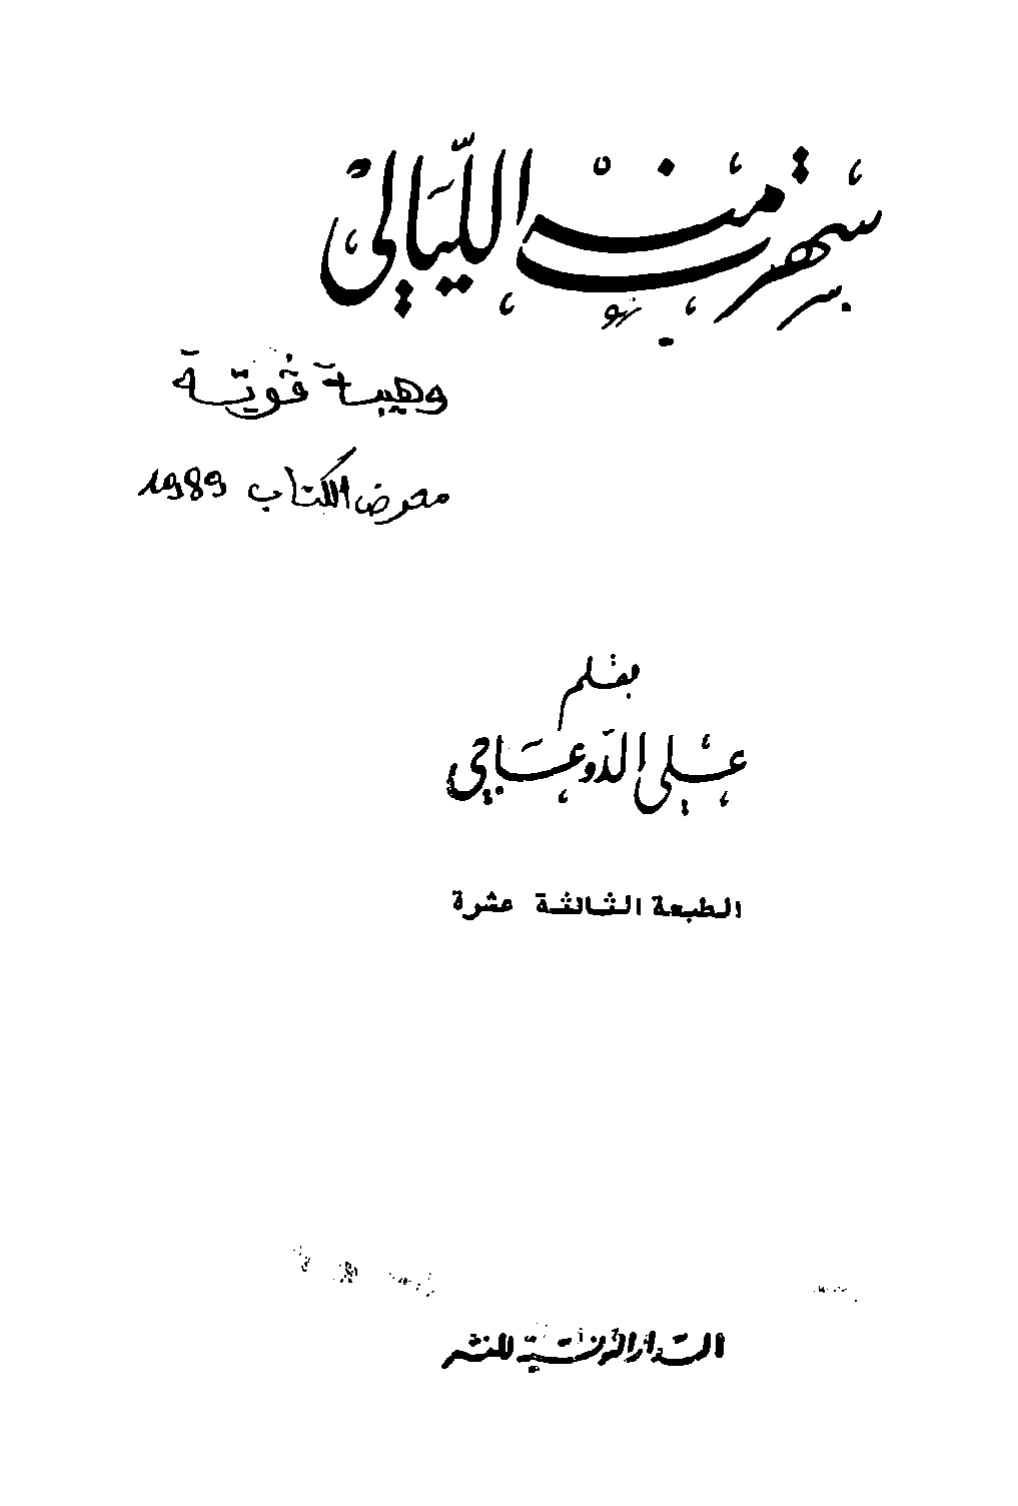 سهرت منه الليالي
وهيبة قوية
معرض الكتاب 1989
بقلم
علي الدوعاجي
الطبعة الثالثة عشرة
الدار التونسية للنشر